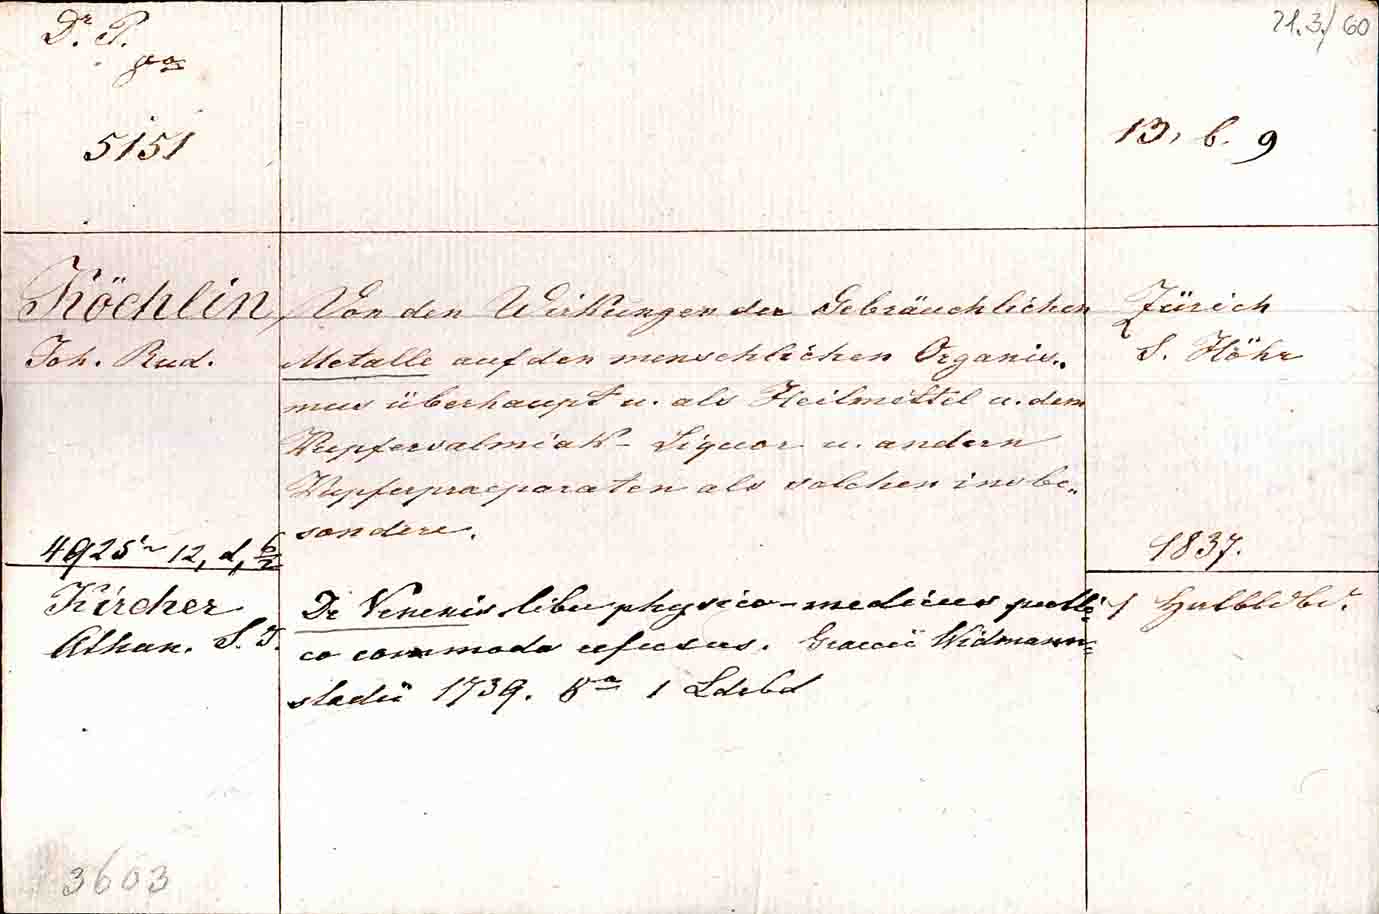 Dr. P.
8vo
5151
21.3./60
13, b. 9
Köchlin,
Joh. Rud.
Von den Wirkungen der Gebräuchlichen
Metalle auf den menschlichen Organis„
mus überhaupt u. als Heilmittel u. dem
Kupfersalmiak-Liquor u. andern
Kupferpraeparaten als solchen insbe„
sondere.
Zürich
S. Höhr
1837.
1 Halbldbd.
4925 12, d, 6/2
Kircher
Athan. S. J.
De Venenis liber physico-medicus publi-
co commodo refusus. Graecii Widmann-
stadii 1739. 8° 1 Ldrbd
3603